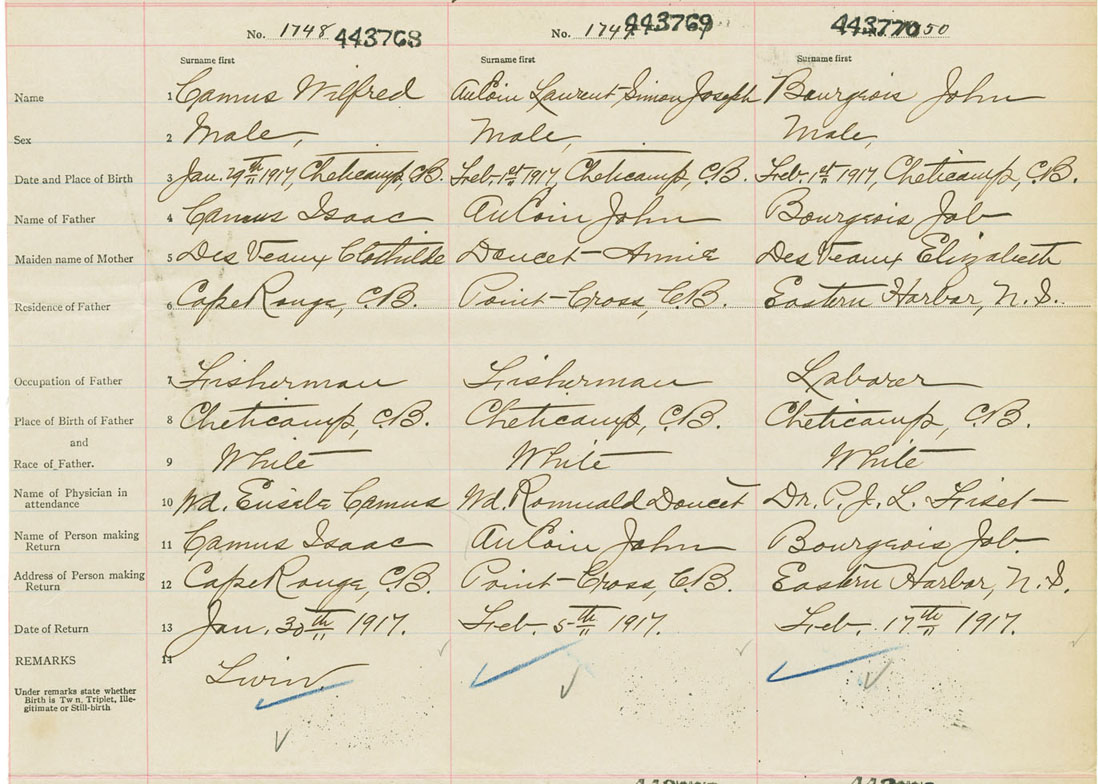 No. 1748 443768 No. 1749 443769 443770 50
Surname first Surname first Surname first
Name 1 Camus Wilfred AuCoin Laurent-Simon Joseph Bourgeois John
Sex 2 Male, Male, Male,
Date and Place of Birth 3 Jan. 29th 1917, Cheticamp, C.B. Feb. 1st 1917, Cheticamp, C.B. Feb. 1st 1917, Cheticamp, C.B.
Name of Father 4 Camus Isaac AuCoin John Bourgeois Job
Maiden name of Mother 5 Des Veaux Clothilde Doucet Annie Des Veaux Elizabeth
Residence of Father 6 Cape Rouge, C.B. Point-Cross, C.B. Eastern Harbor, N.S.
Occupation of Father 7 Fisherman Fisherman Laborer
Place of Birth of Father 8 Cheticamp, C.B. Cheticamp, C.B. Cheticamp, C.B.
and
Race of Father. 9 White White White
Name of Physician in
attendance 10 Wd. Camus Wd. Romuald Doucet Dr. P. J. L. Fiset
Name of Person making
Return 11 Camus Isaac AuCoin John Bourgeois Job.
Address of Person making
Return 12 Cape Rouge, C.B. Point-Cross, C.B. Eastern Harbor, N.S.
Date of Return 13 Jan. 30th 1917. Feb. 5th 1917. Feb. 17th 1917.
REMARKS 14 Twin
Under remarks state whether
Birth is Tw n, Triplet, Ille-
gitimate or Still-birth